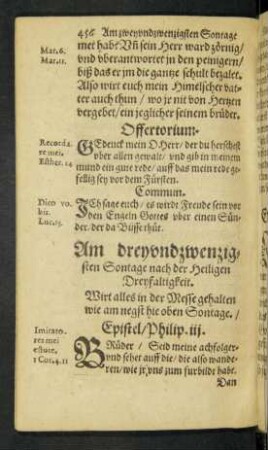 456 Am zweyvndzwenzigsten Sontage
met habe? Vñ sein Herr ward zörnig/
vnd vberantwortet in den peinigern/
biß das er jm die gantze schult bezalet.
Also wirt euch mein Himelscher vat-
ter auch thun / wo jr nit von Hertzen
vergebet/ein jeglicher seinem brüder.
Mat. 6.
Mar. 11.
Offertorium.
GEdenck mein O Herr/ der du herschest
vber allen gewalt/ vnd gib in meinem
mund ein gute rede/ auff das mein rede ge-
fellig sey vor dem Fürsten.
Recorda-
re mei.
Esther. 14
Commun.
ICh sage euch/ es wirdt Freude sein vor
den Engeln Gottes vber einen Sün-
der/ der da Büsse thüt.
Dico vo-
bis.
Luc. 15.
Am dreyvndzwenzig-
sten Sontage nach der Heiligen
Dreyfaltigkeit.
Wirt alles in der Messe gehalten
wie am negst hie oben Sontage. /
Epistel/Philip. iij.
BRüder / Seid meine achfolger/
vnd sehet auff die/ die also wande-
ren/ wie jr vns zum furbildt habt.
Imitato-
res mei
estote.
1 Cor. 4. 11
Dan